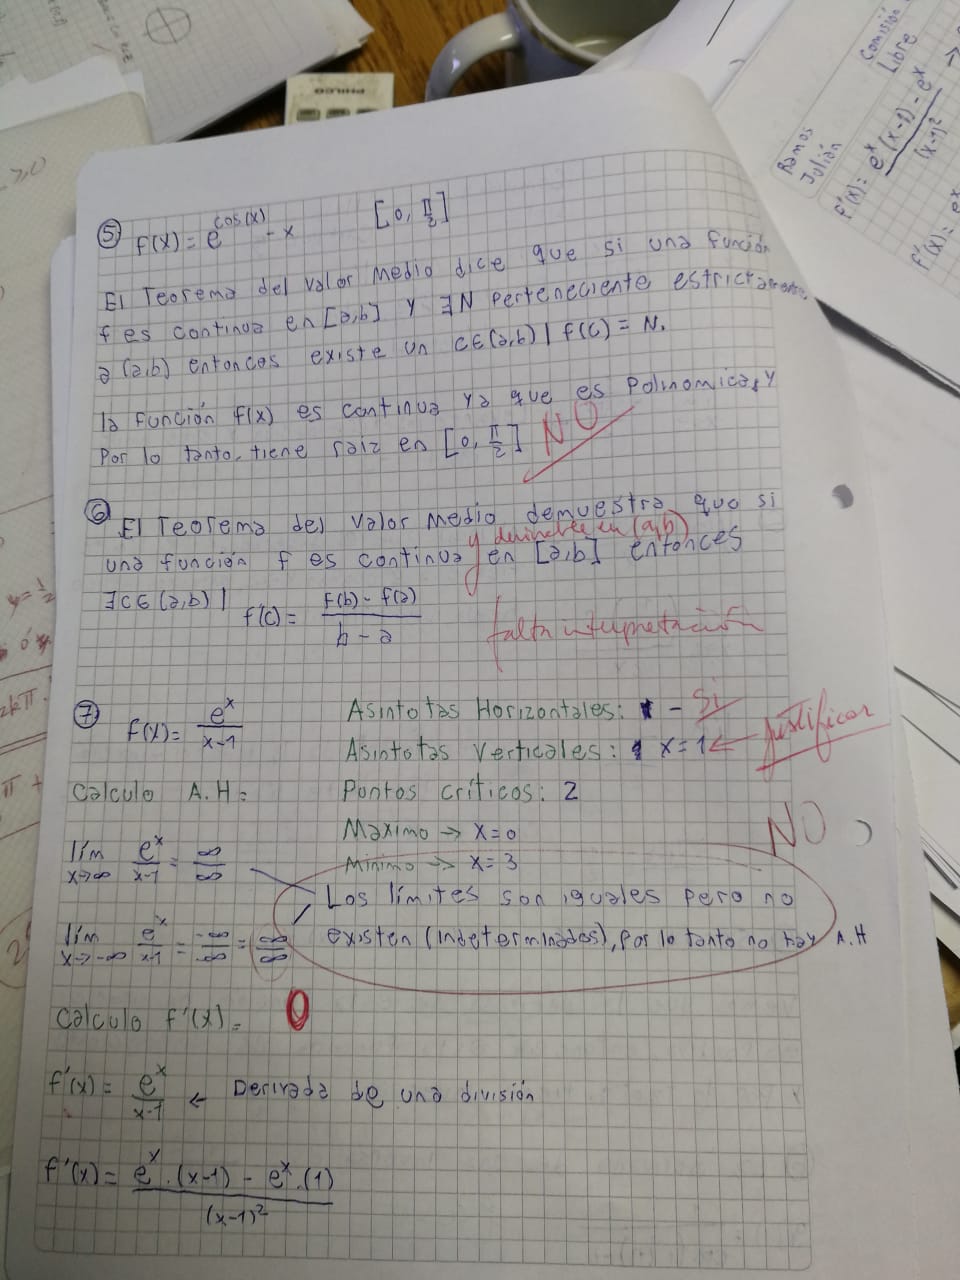 ⑤ f(x) = e^cos(x) - x [0, π/2]
El Teorema del valor Medio dice que si una función
f es continua en [a,b] y ∃N perteneciente estrictamente
a (a,b) entonces existe un c∈(a,b) | f(c) = N.
la función f(x) es continua ya que es Polinomica, y
Por lo tanto, tiene raiz en [0, π/2] NO
⑥ El Teorema del valor Medio demuestra que si
y derivable en (a,b)
una función f es continua en [a,b] entonces
∃c∈(a,b) | f'(c) = f(b) - f(a) / b - a
falta interpretación
⑦ f(x) = e^x / x-1
Asintotas Horizontales: - Si
Asintotas Verticales: x=1 ← justificar
Calculo A.H =
Puntos críticos: 2
Maximo → x=0
NO
Minimo → x=3
lím x→∞ e^x / x-1 = ∞ / ∞
Los límites son iguales pero no
lím x→-∞ e^x / x-1 = -∞ / -∞ = ∞ / ∞
existen (indeterminados), por lo tanto no hay A.H
0
Calculo f'(x) =
f'(x) = e^x / x-1 ← Derivada de una división
f'(x) = e^x . (x-1) - e^x . (1) / (x-1)^2
PHILCO
Ramos
Julián
Comisión
Libre
f'(x) = e^x (x-1) - e^x / (x-1)^2
f'(x) =